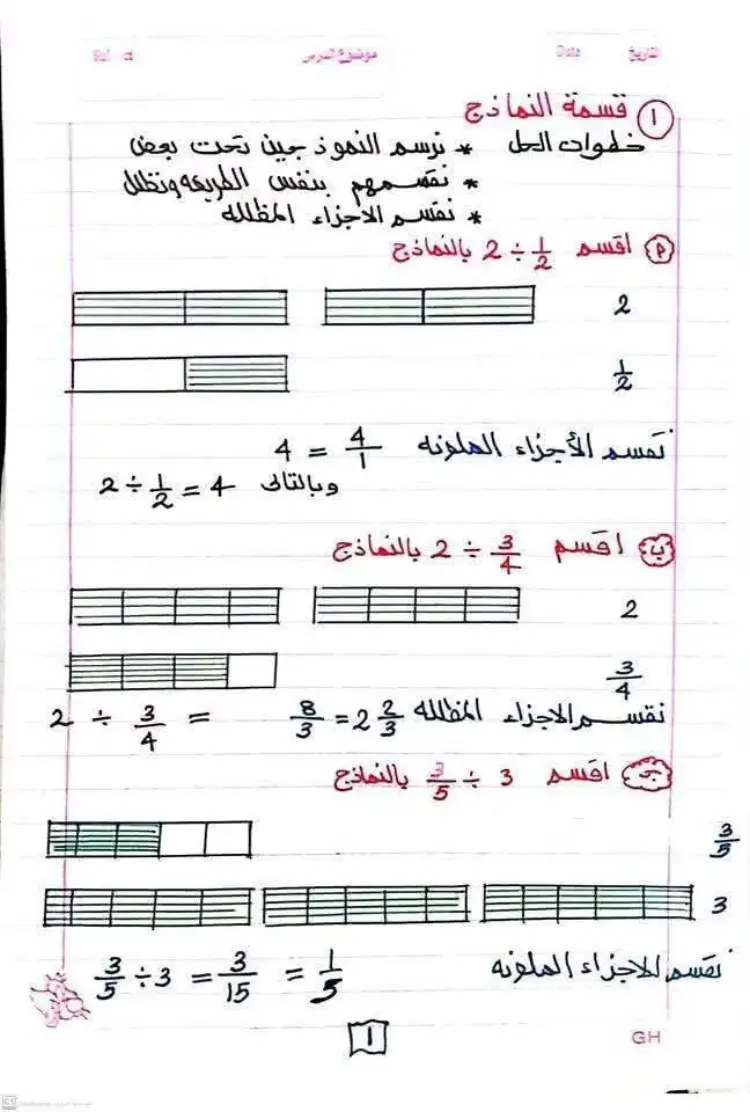 التاريخ Date موضوع الدرس
١ قسمة النماذج
خطوات الحل * نرسم النموذجين تحت بعض
* نقسمهم بنفس الطريقه ونظلل
* نقسم الاجزاء المظلله
أ اقسم 2 ÷ 1/2 بالنماذج
2
1/2
نقسم الأجزاء الملونه 4/1 = 4
وبالتالى 2 ÷ 1/2 = 4
ب اقسم 2 ÷ 3/4 بالنماذج
2
3/4
نقسم الاجزاء المظلله 2 ÷ 3/4 = 8/3 = 2 2/3
جـ اقسم 3/5 ÷ 3 بالنماذج
3/5
3
نقسم للاجزاء الملونه 3/5 ÷ 3 = 3/15 = 1/5
1
GH